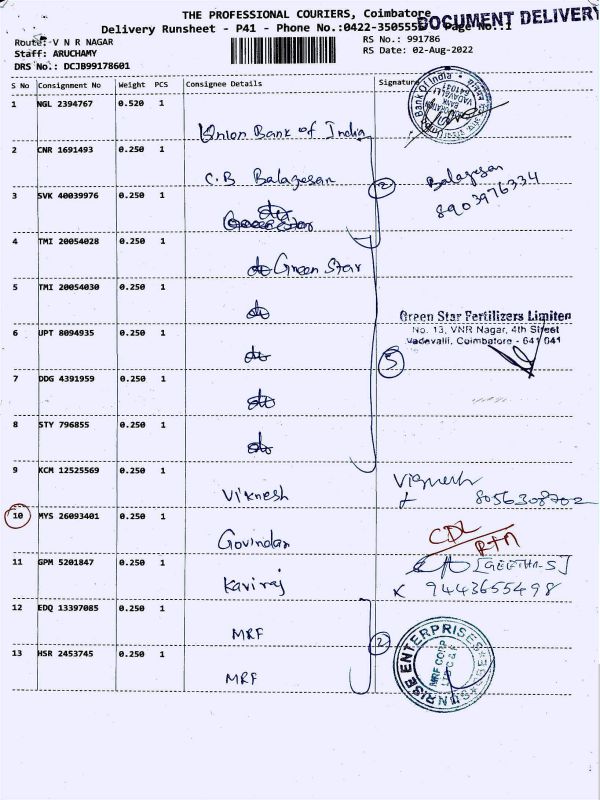 THE PROFESSIONAL COURIERS, Coimbatore
DOCUMENT DELIVERY
Delivery Runsheet - P41 - Phone No.:0422-350555
Route: V N R NAGAR
RS No.: 991786
Staff: ARUCHAMY
RS Date: 02-Aug-2022
DRS No.: DCJB99178601
S No Consignment No Weight PCS Consignee Details Signature
1 NGL 2394767 0.520 1 Union Bank of India
2 CNR 1691493 0.250 1 C.B Balagesan Balagesan
8903976334
3 SVK 40039976 0.250 1 do
2
4 TMI 20054028 0.250 1 do Green Star
5 TMI 20054030 0.250 1 do
Green Star Fertilizers Limited
No. 13, VNR Nagar, 4th Street
Vadavalli, Coimbatore - 641 041
6 JPT 8094935 0.250 1 do
5
7 DDG 4391959 0.250 1 do
8 STY 796855 0.250 1 do
9 KCM 12525569 0.250 1 Viknesh Vignesh
8056308702
10 MYS 26093401 0.250 1 Govindan CDL
RTN
11 GPM 5201847 0.250 1 Kaviraj [GEETHA-S]
9443655498
12 EDQ 13397085 0.250 1 MRF
2
13 HSR 2453745 0.250 1 MRF
SUNRISE ENTERPRISES
MRF CORP
LTD C & F